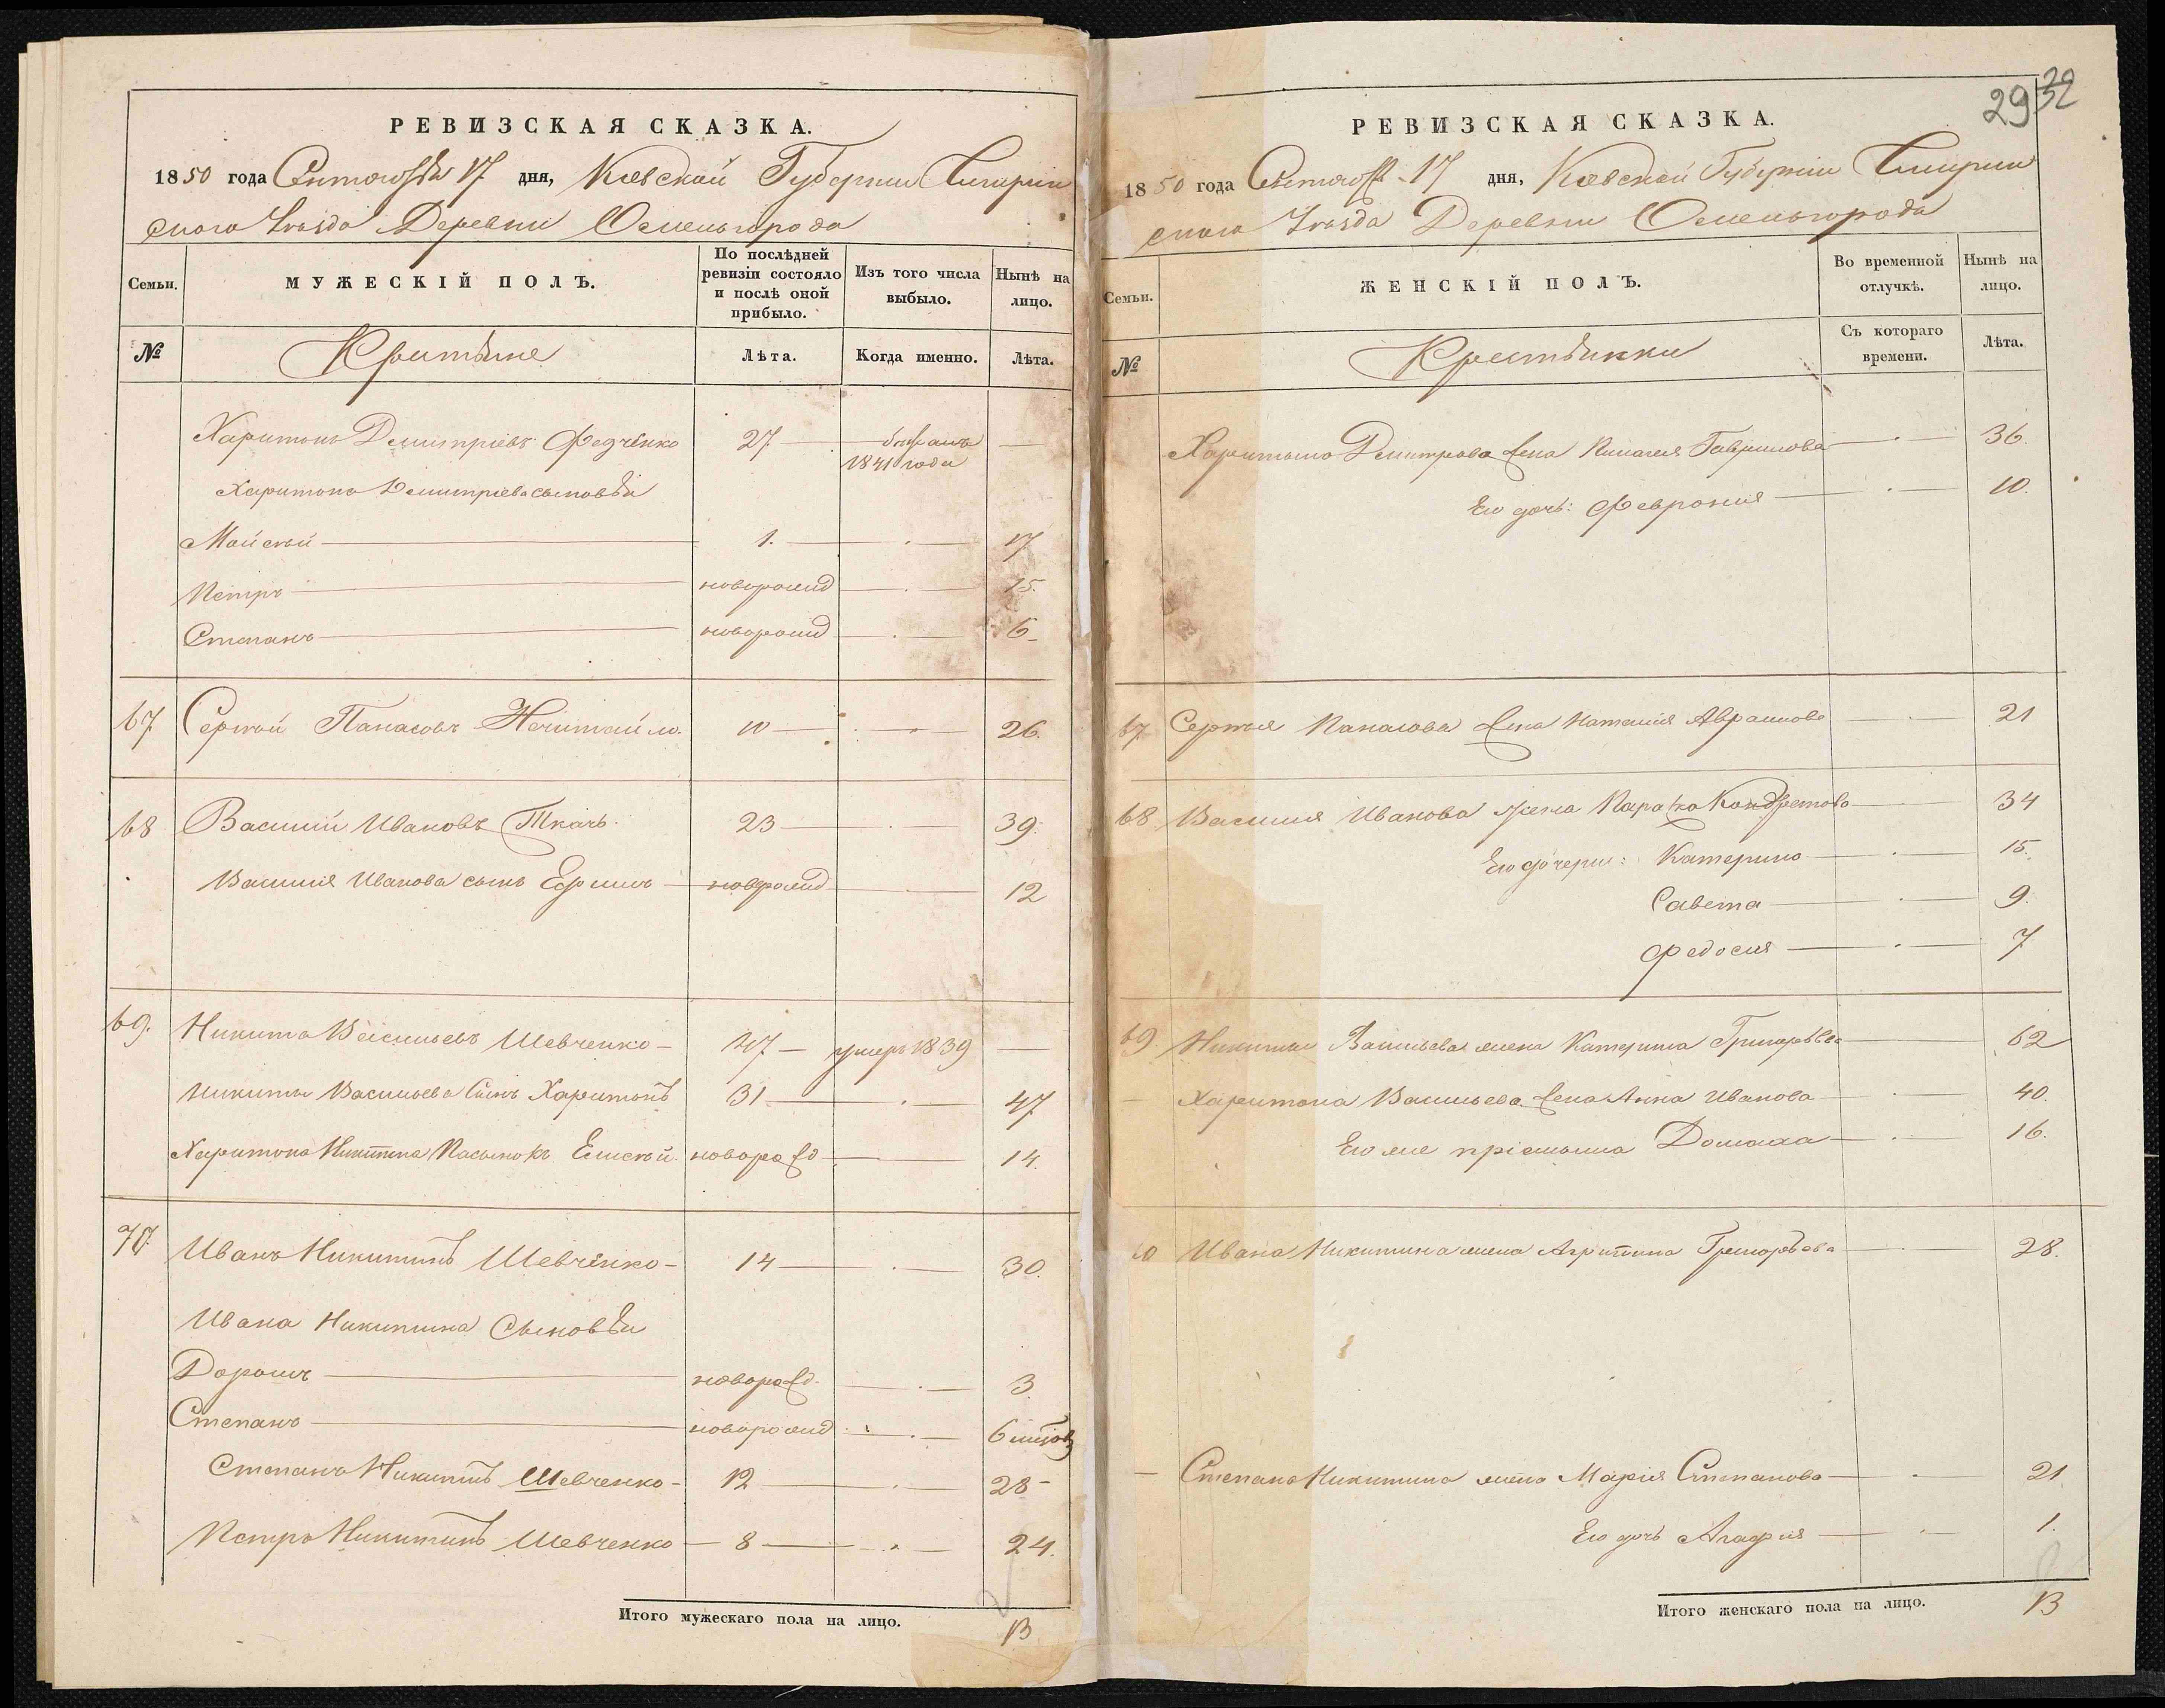 РЕВИЗСКАЯ СКАЗКА.
1850 года Сентября 17 дня, Киевской Губернии Чигирин
скаго Уѣзда Деревни Осменьгорода
Семьи.
МУЖЕСКІЙ ПОЛЪ.
По послѣдней
ревизіи состояло
и послѣ оной
прибыло.
Изъ того числа
выбыло.
Нынѣ на
лицо.
№
Крестьяне
Лѣта.
Когда именно.
Лѣта.
Харитонъ Демитріевъ Федченко 27
1841 года
Харитона Демитріева сыновья
Мойсей 1. 17
Петръ новорожд 15.
Степанъ новорожд 6
67 Сергѣй Панасовъ Нечитайло. 10 26.
68 Василий Ивановъ Ткачъ. 23 39.
Василия Иванова сынъ Ефимъ новорожд 12
69. Никита Васильевъ Шевченко 47 умеръ 1839
Никиты Васильева Сынъ Харитонъ 31 47
Харитона Никитина Пасынокъ Елисѣй. новорожд 14.
70. Иванъ Никитинъ Шевченко 14 30.
Ивана Никитина Сыновья
Дорошъ новорожд. 3.
Степанъ новорожд 6
Степанъ Никитинъ Шевченко 12 28
Петръ Никитинъ Шевченко 8 24.
Итого мужескаго пола на лицо. 13
29 32
РЕВИЗСКАЯ СКАЗКА.
1850 года Сентября 17 дня, Киевской Губерніи Чигирин
скаго Уѣзда Деревни Осменьгорода
Семьи.
ЖЕНСКІЙ ПОЛЪ.
Во временной
отлучкѣ.
Нынѣ на
лицо.
№
Крестьянки
Съ котораго
времени.
Лѣта.
Харитона Демитрова жена Пилагея Гаврилова 36.
Его дочь: Феврония 10.
67 Сергея Панасова жена Наталия Абрамова 21
68 Василия Иванова жена Параска Кондратова 34
Его дочери: Катерина 15.
Савета 9.
Федосия 7
69 Никиты Васильева жена Катерина Григорьева 62
Харитона Васильева жена Анна Иванова 40.
Его же пріемыша Домаха 16.
70 Ивана Никитина жена Агрипина Григорьева 28.
Степана Никитина жена Марія Степанова 21
Его дочь Агафия 1.
Итого женскаго пола на лицо. 13